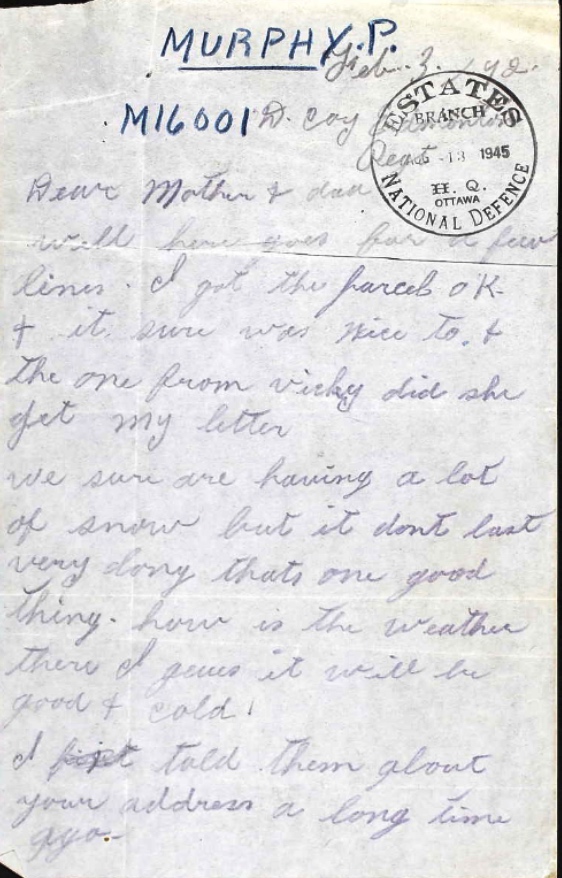 MURPHY. P.
Feb. 3.
M16001 D. Coy Edmonton
Regt
ESTATES
BRANCH
13 1945
H. Q.
OTTAWA
NATIONAL DEFENCE
Dear Mother & dad
well here goes for a few
lines. I got the parcel OK
& it sure was nice to. &
the one from vicky did she
get my letter
we sure are having a lot
of snow but it dont last
very long thats one good
thing. how is the weather
there I gues it will be
good & cold!
I told them about
your address a long time
ago-